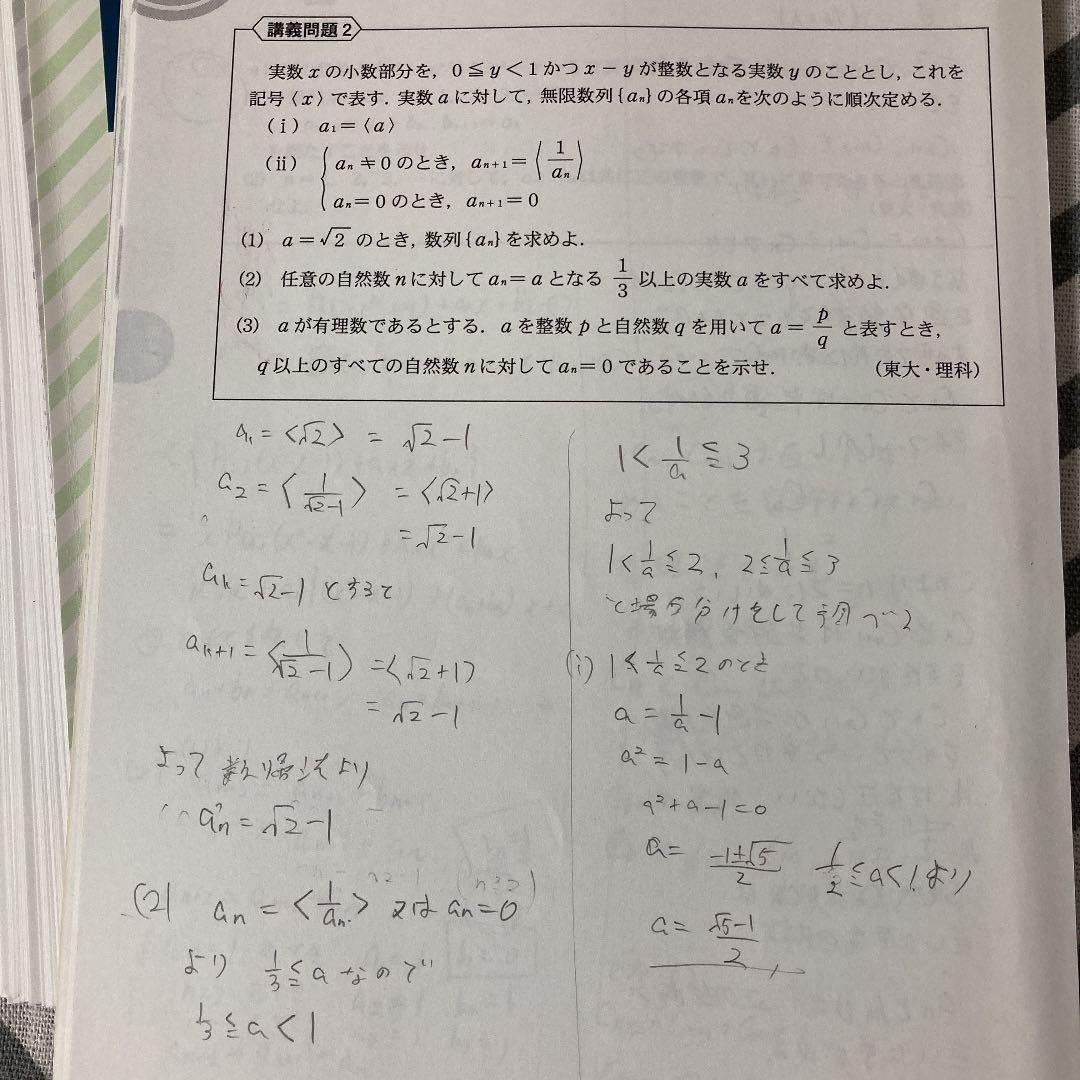 講義問題2
実数 x の小数部分を, 0≦y<1かつ x−y が整数となる実数 y のこととし, これを
記号〈x〉で表す. 実数 a に対して, 無限数列{aₙ}の各項 aₙを次のように順次定める.
(i) a₁=〈a〉
(ii) { aₙ≠0のとき, aₙ₊₁=〈1/aₙ〉
aₙ=0のとき, aₙ₊₁=0
(1) a=√2 のとき, 数列{aₙ}を求めよ.
(2) 任意の自然数 n に対して aₙ=a となる 1/3 以上の実数 a をすべて求めよ.
(3) a が有理数であるとする. a を整数 p と自然数 q を用いて a=p/q と表すとき,
q 以上のすべての自然数 n に対して aₙ=0であることを示せ. (東大・理科)
a₁=〈√2〉 = √2−1
a₂=〈1/(√2−1)〉 =〈√2+1〉
=√2−1
aₖ=√2−1 とすると
aₖ₊₁=〈1/(√2−1)〉=〈√2+1〉
=√2−1
よって 数帰法より
aₙ=√2−1
(2) aₙ=〈1/aₙ〉又は aₙ=0
より 1/3≦a なので
1/3≦a<1
1<1/a≦3
よって
1<1/a≦2, 2≦1/a≦3
と場合分けをして調べる
(i) 1<1/a≦2のとき
a=1/a−1
a²=1−a
a²+a−1=0
a=(−1±√5)/2 1/2≦a<1より
a=(√5−1)/2